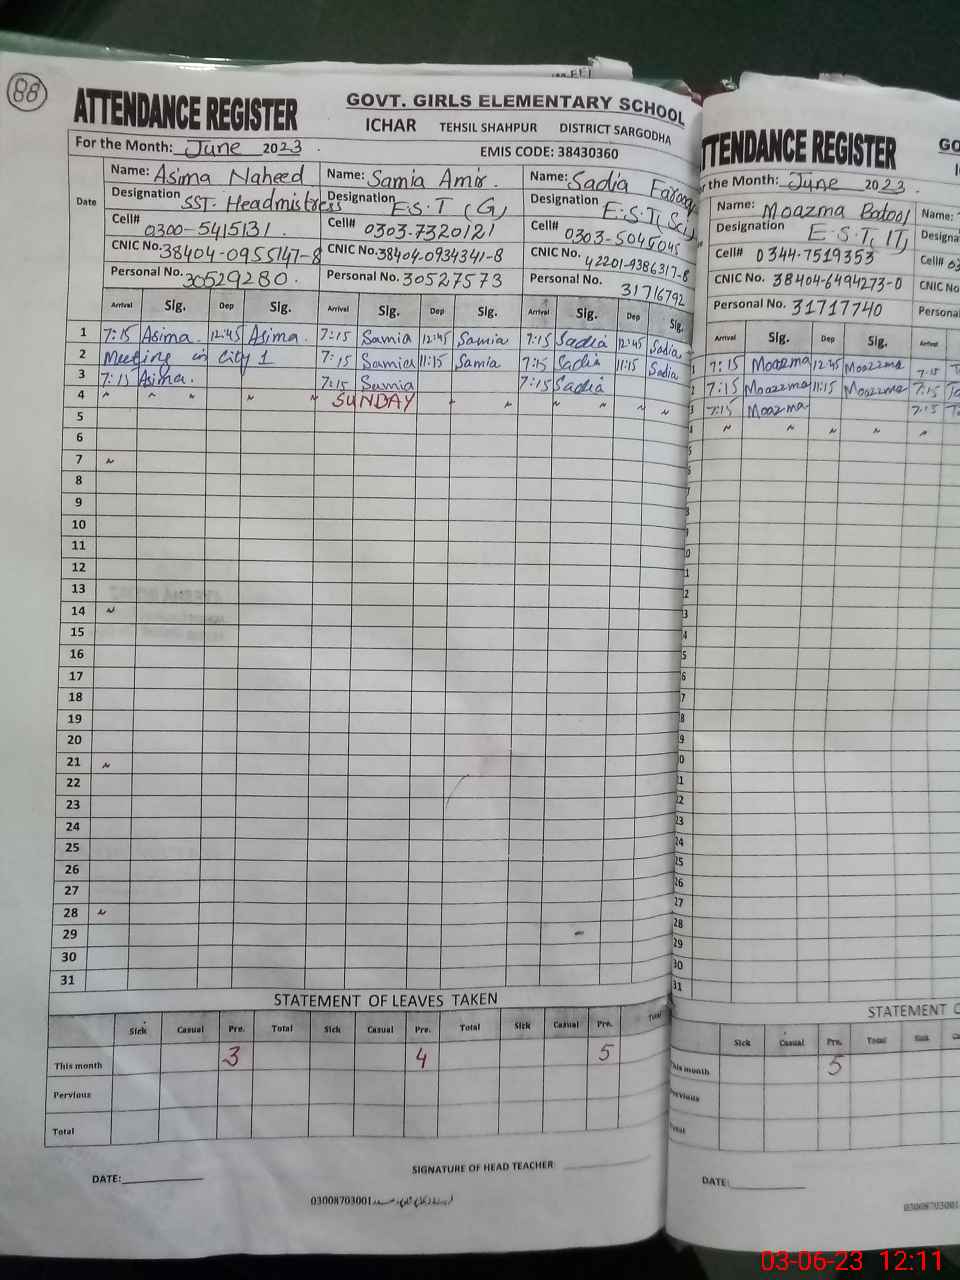 88
ATTENDANCE REGISTER
GOVT. GIRLS ELEMENTARY SCHOOL
ICHAR TEHSIL SHAHPUR DISTRICT SARGODHA
For the Month: June 2023.
EMIS CODE: 38430360
Date
Name: Asima Naheed Name: Samia Amir. Name: Sadia Farooq
Designation SST. Headmistress Designation E.S.T (G) Designation E.S.T(Sc)
Cell# 0300-5415131. Cell# 0303-7320121 Cell# 0303-5045045
CNIC No. 38404-0955147-8 CNIC No. 38404-0934341-8 CNIC No. 42201-9386317-8
Personal No. 30529280. Personal No. 30527573 Personal No. 31716792
Arrival Sig. Dep Sig. Arrival Sig. Dep Sig. Arrival Sig. Dep Sig.
1 7:15 Asima. 12:45 Asima. 7:15 Samia 12:45 Samia 7:15 Sadia 12:45 Sadia
2 Meeting in City 1 7:15 Samia 11:15 Samia 7:15 Sadia 11:15 Sadia
3 7:15 Asima. 7:15 Samia 7:15 Sadia
4 SUNDAY
5
6
7
8
9
10
11
12
13
14
15
16
17
18
19
20
21
22
23
24
25
26
27
28
29
30
31
STATEMENT OF LEAVES TAKEN
Sick Casual Pre. Total Sick Casual Pre. Total Sick Casual Pre. Total
This month 3 4 5
Pervious
Total
DATE: SIGNATURE OF HEAD TEACHER
03008703001
TTENDANCE REGISTER GO
r the Month: June 2023.
Name: Moazma Batool Name:
Designation E.S.T, IT) Designa
Cell# 0344-7519353 Cell# 03
CNIC No. 38404-6494273-0 CNIC No
Personal No. 31717740 Personal
Arrival Sig. Dep Sig. Arrival
7:15 Moazma 12:45 Moazzma 7:15
7:15 Moazzma 11:15 Moazzma 7:15
7:15 Moazma 7:15
STATEMENT O
Sick Casual Pre. Total Sick
This month 5
Pervious
Total
DATE:
03008703001
03-06-23 12:11